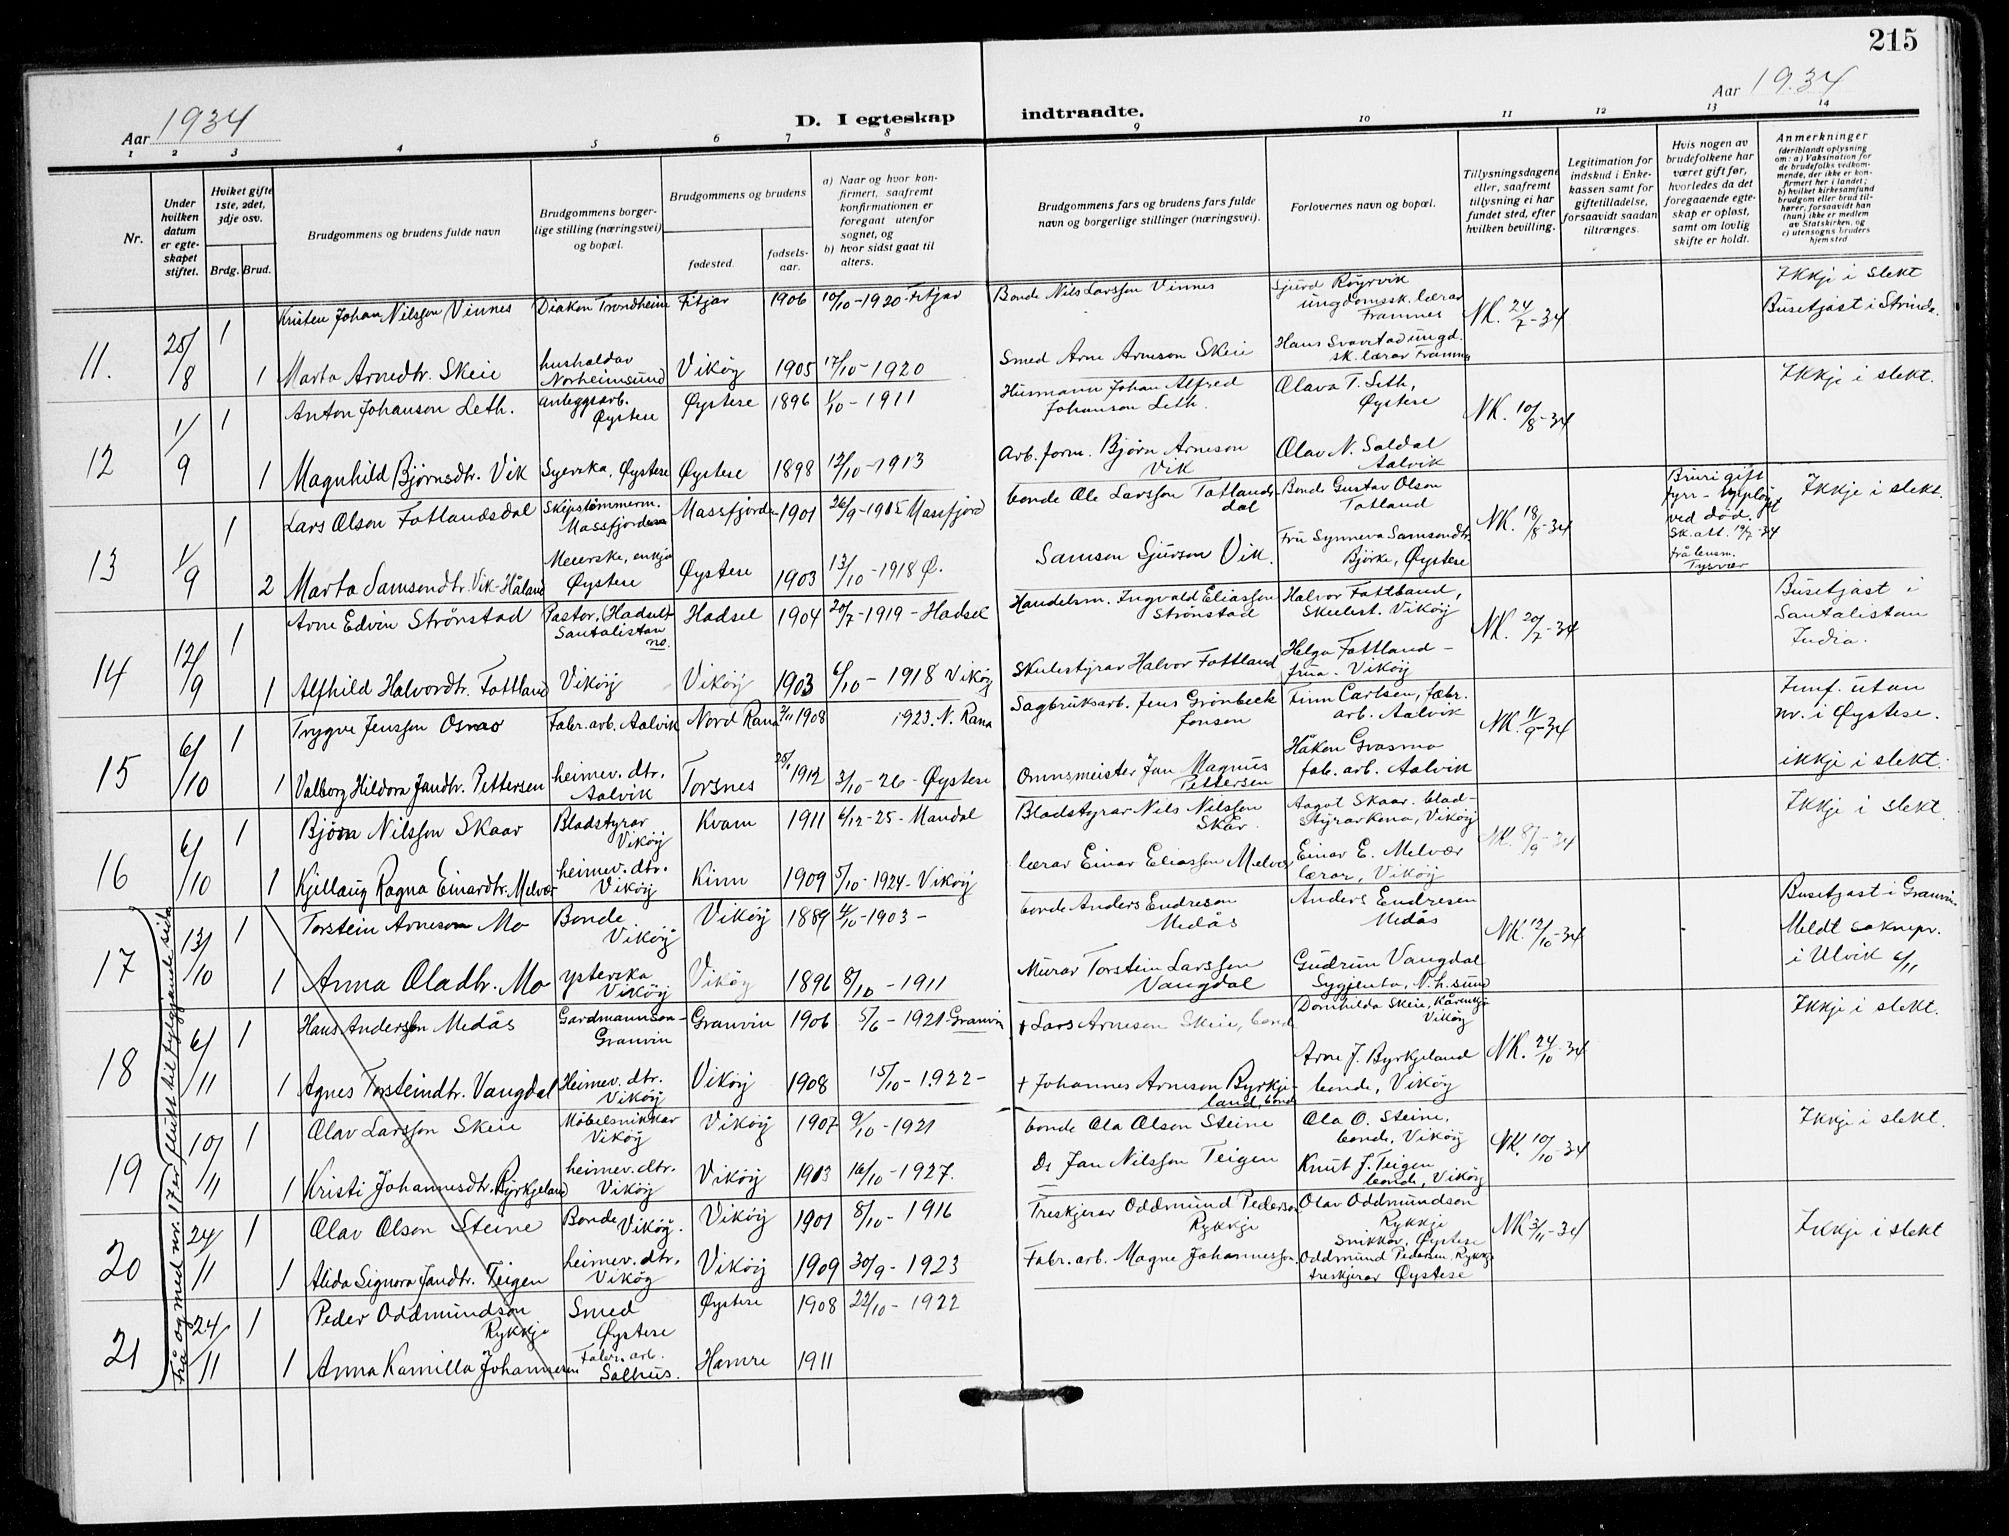 215
Aar 1934
D. I egteskap
indtraadte.
Aar 1934
1 2 3 4 5 6 7 8 9 10 11 12 13 14
Nr.
Under hvilken datum er egteskapet stiftet.
Hvilket gifte 1ste, 2det, 3dje osv.
Brdg. Brud.
Brudgommens og brudens fulde navn
Brudgommens borgerlige stilling (næringsvei) og bopæl.
Brudgommens og brudens
fødested.
fødselsaar.
a) Naar og hvor konfirmert, saafremt konfirmationen er foregaat utenfor sognet, og
b) hvor sidst gaat til alters.
Brudgommens fars og brudens fars fulde navn og borgerlige stillinger (næringsvei).
Forlovernes navn og bopæl.
Tillysningsdagene eller, saafremt tillysning ei har fundet sted, efter hvilken bevilling.
Legitimation for indskud i Enkekassen samt for giftetilladelse, forsaavidt saadan tiltrænges.
Hvis nogen av brudefolkene har været gift før, hvorledes da det foregaaende egteskap er opløst, samt om lovlig skifte er holdt.
Anmerkninger
(deriblandt oplysning om: a) Vaksination for de brudefolks vedkommende, der ikke er konfirmert her i landet; b) hvilket kirkesamfund brudgom eller brud tilhører, forsaavidt han (hun) ikke er medlem av Statskirken, og c) utensogns bruders hjemsted
11. 25/8 1 Kristen Johan Nilsson Vinnes Diakon Trondheim Fitjar 1906 10/10-1920-Fitjar Bonde Nils Larsson Vinnes Sjurd Røyrvik ungdomssk. lærar Framnes NK. 24/7-34 Ikkje i slekt Busetjast i Strinda.
1 Marta Arnedtr. Skeie hushaldar Norheimsund Vikøy 1905 17/10-1920 Smed Arne Arneson Skeie Hans Svarstad ungd. sk. lærar Framnes
12 1/9 1 Anton Johanson Leth. anleggsarb. Øystese Øystese 1896 1/10-1911 Husmann Johan Alfred Johanson Leth. Olava T. Leth, Øystese NK. 10/8-34 Ikkje i slekt.
1 Magnhild Bjørnsdtr. Vik Syerska, Øystese Øystese 1898 12/10-1913 Arb. form. Bjørn Arneson Vik Olav N. Soldal Aalvik
13 1/9 1 Lars Olson Fotlandsdal Skipstømmerm. Massfjorden Massfjord 1901 26/9-1915 Massfjord bonde Ole Larsson Fotlandsdal Bonde Gustav Olson Totland NK. 18/8-34 Bruri gift fyrr - ved død. Sk.att. 19/7-34 frå lensm. Tysvær Ikkje i slekt.
2 Marta Samsondtr. Vik-Håland Meierske, enkja Øystese Øystese 1903 13/10-1918 Ø. Samson Sjurson Vik. Fru Synneva Samsondtr. Bjørke, Øystese
14 12/9 1 Arne Edvin Strønstad Pastor, (Hadsel) Santalistan no. Hadsel 1904 20/7-1919-Hadsel Handelsm. Ingvald Eliasson Strønstad Halvor Fottland, Skulest. Vikøy NK. 20/7-34 Busetjast i Santalistan India.
1 Alfhild Halvordtr. Fottland Vikøy Vikøy 1903 6/10-1918 Vikøy Skulestyrar Halvor Fottland Helga Fottland - frua. Vikøy
15 6/10 1 Trygve Jensson Osmo Fabr.arb. Aalvik Nord Rana 2/11 1908 1923. N. Rana Sagbruksarb. Jens Grønbeck Jonson Finn Carlsen, fabr. arb. Aalvik NK. 11/9-34 Innf. utan nr. i Øystese.
1 Valborg Hildora Jandtr. Pettersen heimev. dtr. Aalvik Torsnes 25/1 1912 3/10-26-Øystese Omnsmeister Jan Magnus Pettersen Håkon Grasmo fab. arb. Aalvik ikkje i slekt.
16 6/10 1 Bjørn Nilsson Skaar Bladstyrar Vikøy Kvam 1911 6/12-25-Mandal Bladstyrar Nils Nilsson Skår. Aagot Skaar. bladstyrarkona, Vikøy NK. 8/9-34 Ikkje i slekt
1 Kjellaug Ragna Einardtr. Melvær heimev. dtr. Vikøy Kinn 1909 5/10-1924-Vikøy lærar Einar Eliasson Melvær Einar E. Melvær lærar, Vikøy
17 13/10 1 Torstein Arneson Mo Bonde Vikøy Vikøy 1889 4/10-1903- bonde Anders Endreson Medås Anders Endresen Medås NK. 12/10-34 Busetjast i Granvin. Meldt soknepr. i Ulvik 6/11
1 Anna Oladtr. Mo ysterska Vikøy Vikøy 1896 8/10-1911 Murar Torstein Larsson Vangdal Gudrun Vangdal Sygjenta, N.h.sund
18 6/11 1 Hans Anderson Medås Gardmannson Granvin Granvin 1906 5/6-1921-Granvin † Lars Arneson Skeie, bonde Dornhilda Skeie, Kårenkja Vikøy NK. 24/10-34 Ikkje i slekt.
1 Agnes Torsteindtr. Vangdal Heimev. dtr. Vikøy Vikøy 1908 15/10-1922- † Johannes Arneson Byrkjeland, bonde Arne J. Byrkjeland bonde, Vikøy
19 10/11 1 Olav Larsson Skeie Møbelsnikkar Vikøy Vikøy 1907 9/10-1921 bonde Ola Olson Steine Ola O. Steine, bonde, Vikøy NK. 10/10-34 Ikkje i slekt.
1 Kristi Johannesdtr. Byrkjeland heimev. dtr. Vikøy Vikøy 1913 16/10-1927. Ds Jan Nilsson Teigen Knut J. Teigen bonde, Vikøy
20 24/11 1 Olav Olson Steine Bonde Vikøy. Vikøy 1901 8/10-1916 Treskjerar Oddmund Pederson Rykkje Olav Oddmundson Rykkje Snikkar, Øystese NK 3/11-34 Ikkje i slekt
1 Alida Signora Jandtr. Teigen heimev. dtr. Vikøy Vikøy 1909 30/9-1923 Fabr.arb. Magne Johannesson Oddmund Pedersen Rykkje treskjerar Øystese
21 24/11 1 Peder Oddmundson Rykkje Smed Øystese Øystese 1908 22/10-1922
1 Anna Kamilla Johannesen Fabr. arb. Salhus. Hamre 1911
Frå og med nr. 17 er flutt til fylgjande sida